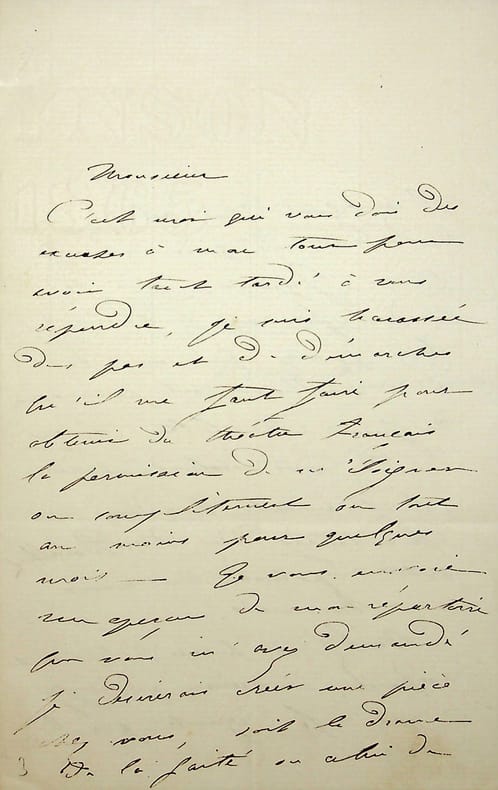 Monsieur
C'est moi qui vous dois des
excuses à mon tour pour
avoir tant tardé à vous
répondre, je suis harassée
des pas et de démarches
qu'il me faut faire pour
obtenir du théatre Français
la permission de m'éloigner
ou complètement ou tout
au moins pour quelques
mois — Je vous envoie
un aperçu de mon répertoire
que vous m'avez demandé
je désirerais créer une pièce
chez vous, soit le drame
De la Gaité ou celui du